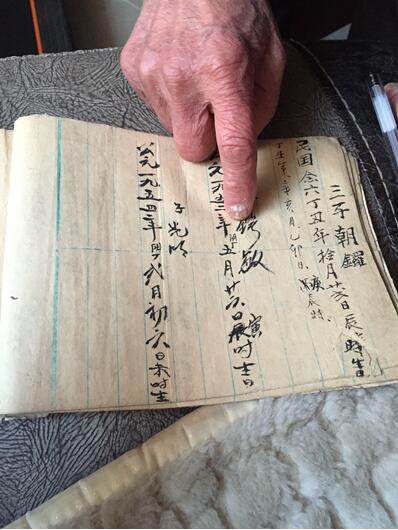 三子朝
民国念六丁丑年拾月廿日辰時生
丁丑年辛亥月乙卯日庚辰時
敏
元一九五三年阴五月廿六日辰寅时生
子光明
公元一九五四年阴弍月初六日未时生